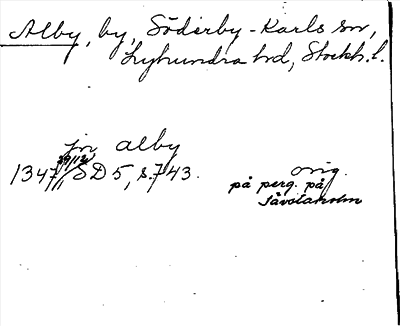 Alby, by, Söderby-Karls sn,
Lyhundra hd, Stockh. l.
jn alby
1347 29/12, SD 5, s. 743.
orig.
på perg. på
Sävstaholm